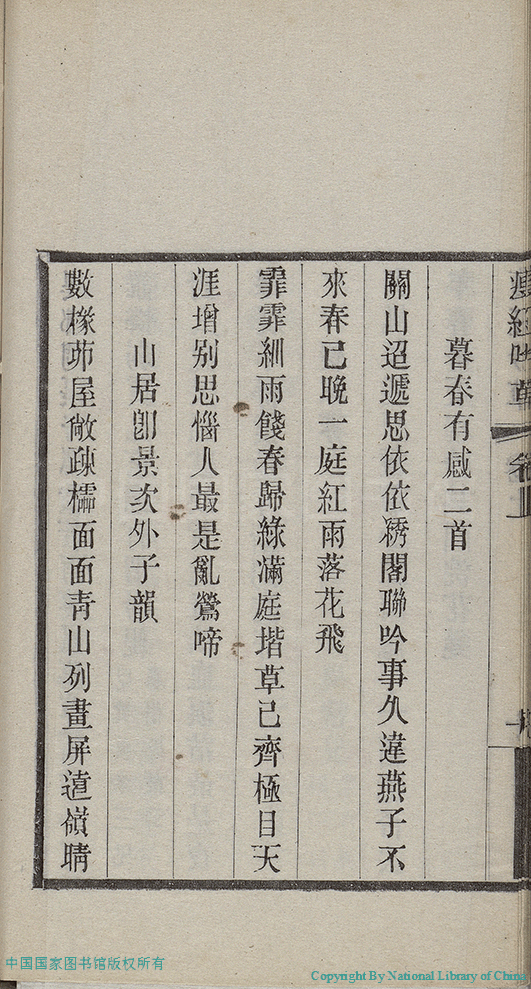 瘦紅吟草
暮春有感二首
關山迢遞思依依綉閣聯吟事久違燕子不
來春已晚一庭紅雨落花飛
霏霏細雨餞春歸綠滿庭堦草已齊極目天
涯增别思惱人最是亂鶯啼
山居卽景次外子韻
數椽茆屋敞疎櫺面面青山列畫屏遠嶺晴
中国国家图书馆版权所有
Copyright By National Library of China